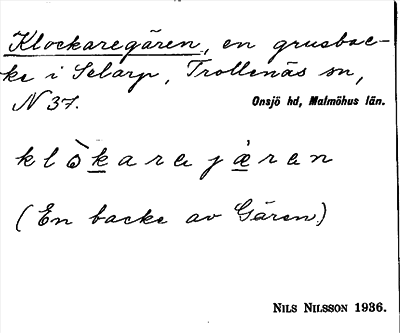 Klockaregären, en grusbac-
ke i Selarp, Trollenäs sn,
N 37. Onsjö hd, Malmöhus län.
klò̀karejæ̀ran
(En backe av Gären.)
NILS NILSSON 1936.